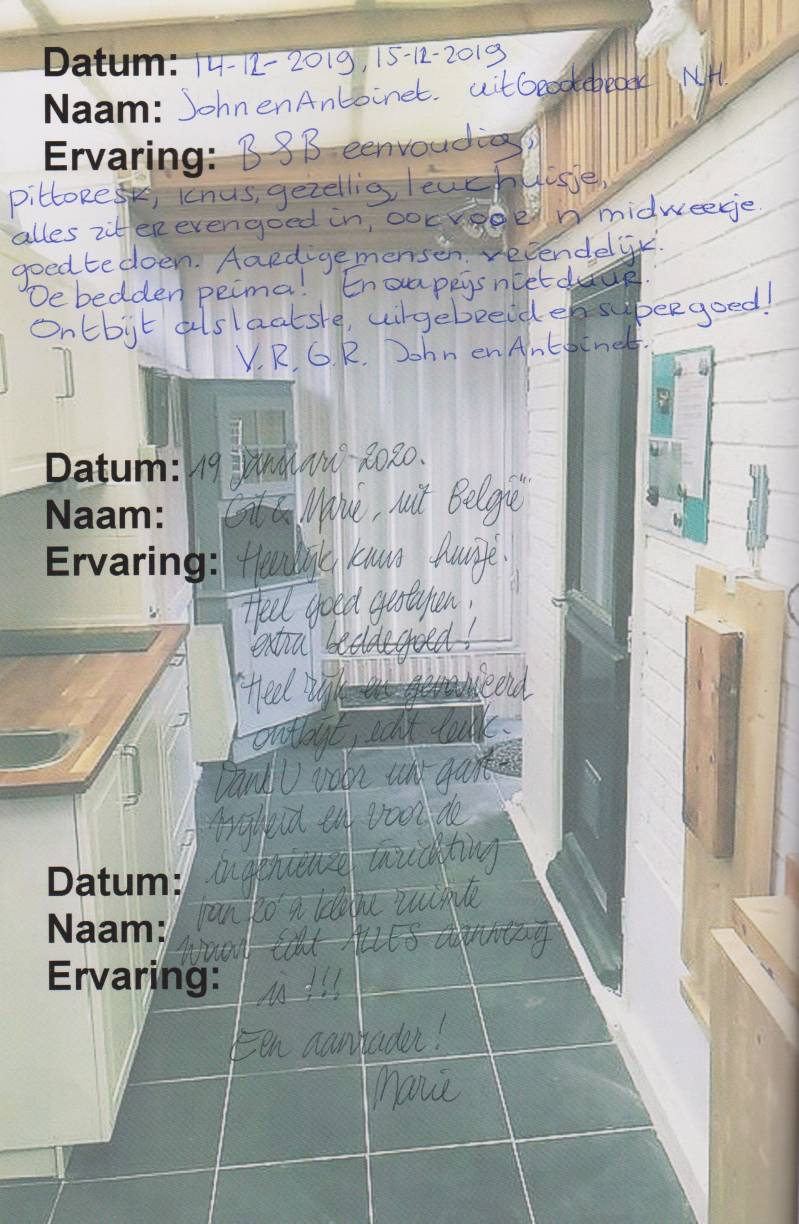 Datum: 14-12-2019, 15-12-2019
Naam: John en Antoinet. uit Grootebroek N.H.
Ervaring: B&B eenvoudig,
pittoresk, knus, gezellig, leuk huisje,
alles zit er even goed in, ook voor 'n midweekje
goed te doen. Aardige mensen, vriendelijk.
De bedden prima! En qua prijs niet duur.
Ontbijt als laatste, uitgebreid en super goed!
V.R.G.R. John en Antoinet.
Datum: 19 januari 2020.
Naam: & Marie, uit België
Ervaring: Heerlijk knus huisje.
Heel goed geslapen.
extra beddegoed!
Heel rijk en gevarieerd
ontbijt, echt leuk.
Dank U voor uw gast-
vrijheid en voor de
ingenieuze inrichting
Datum:
van zo'n kleine ruimte
Naam:
waar écht ALLES aanwezig
Ervaring:
is!!!
Een aanrader!
Marie